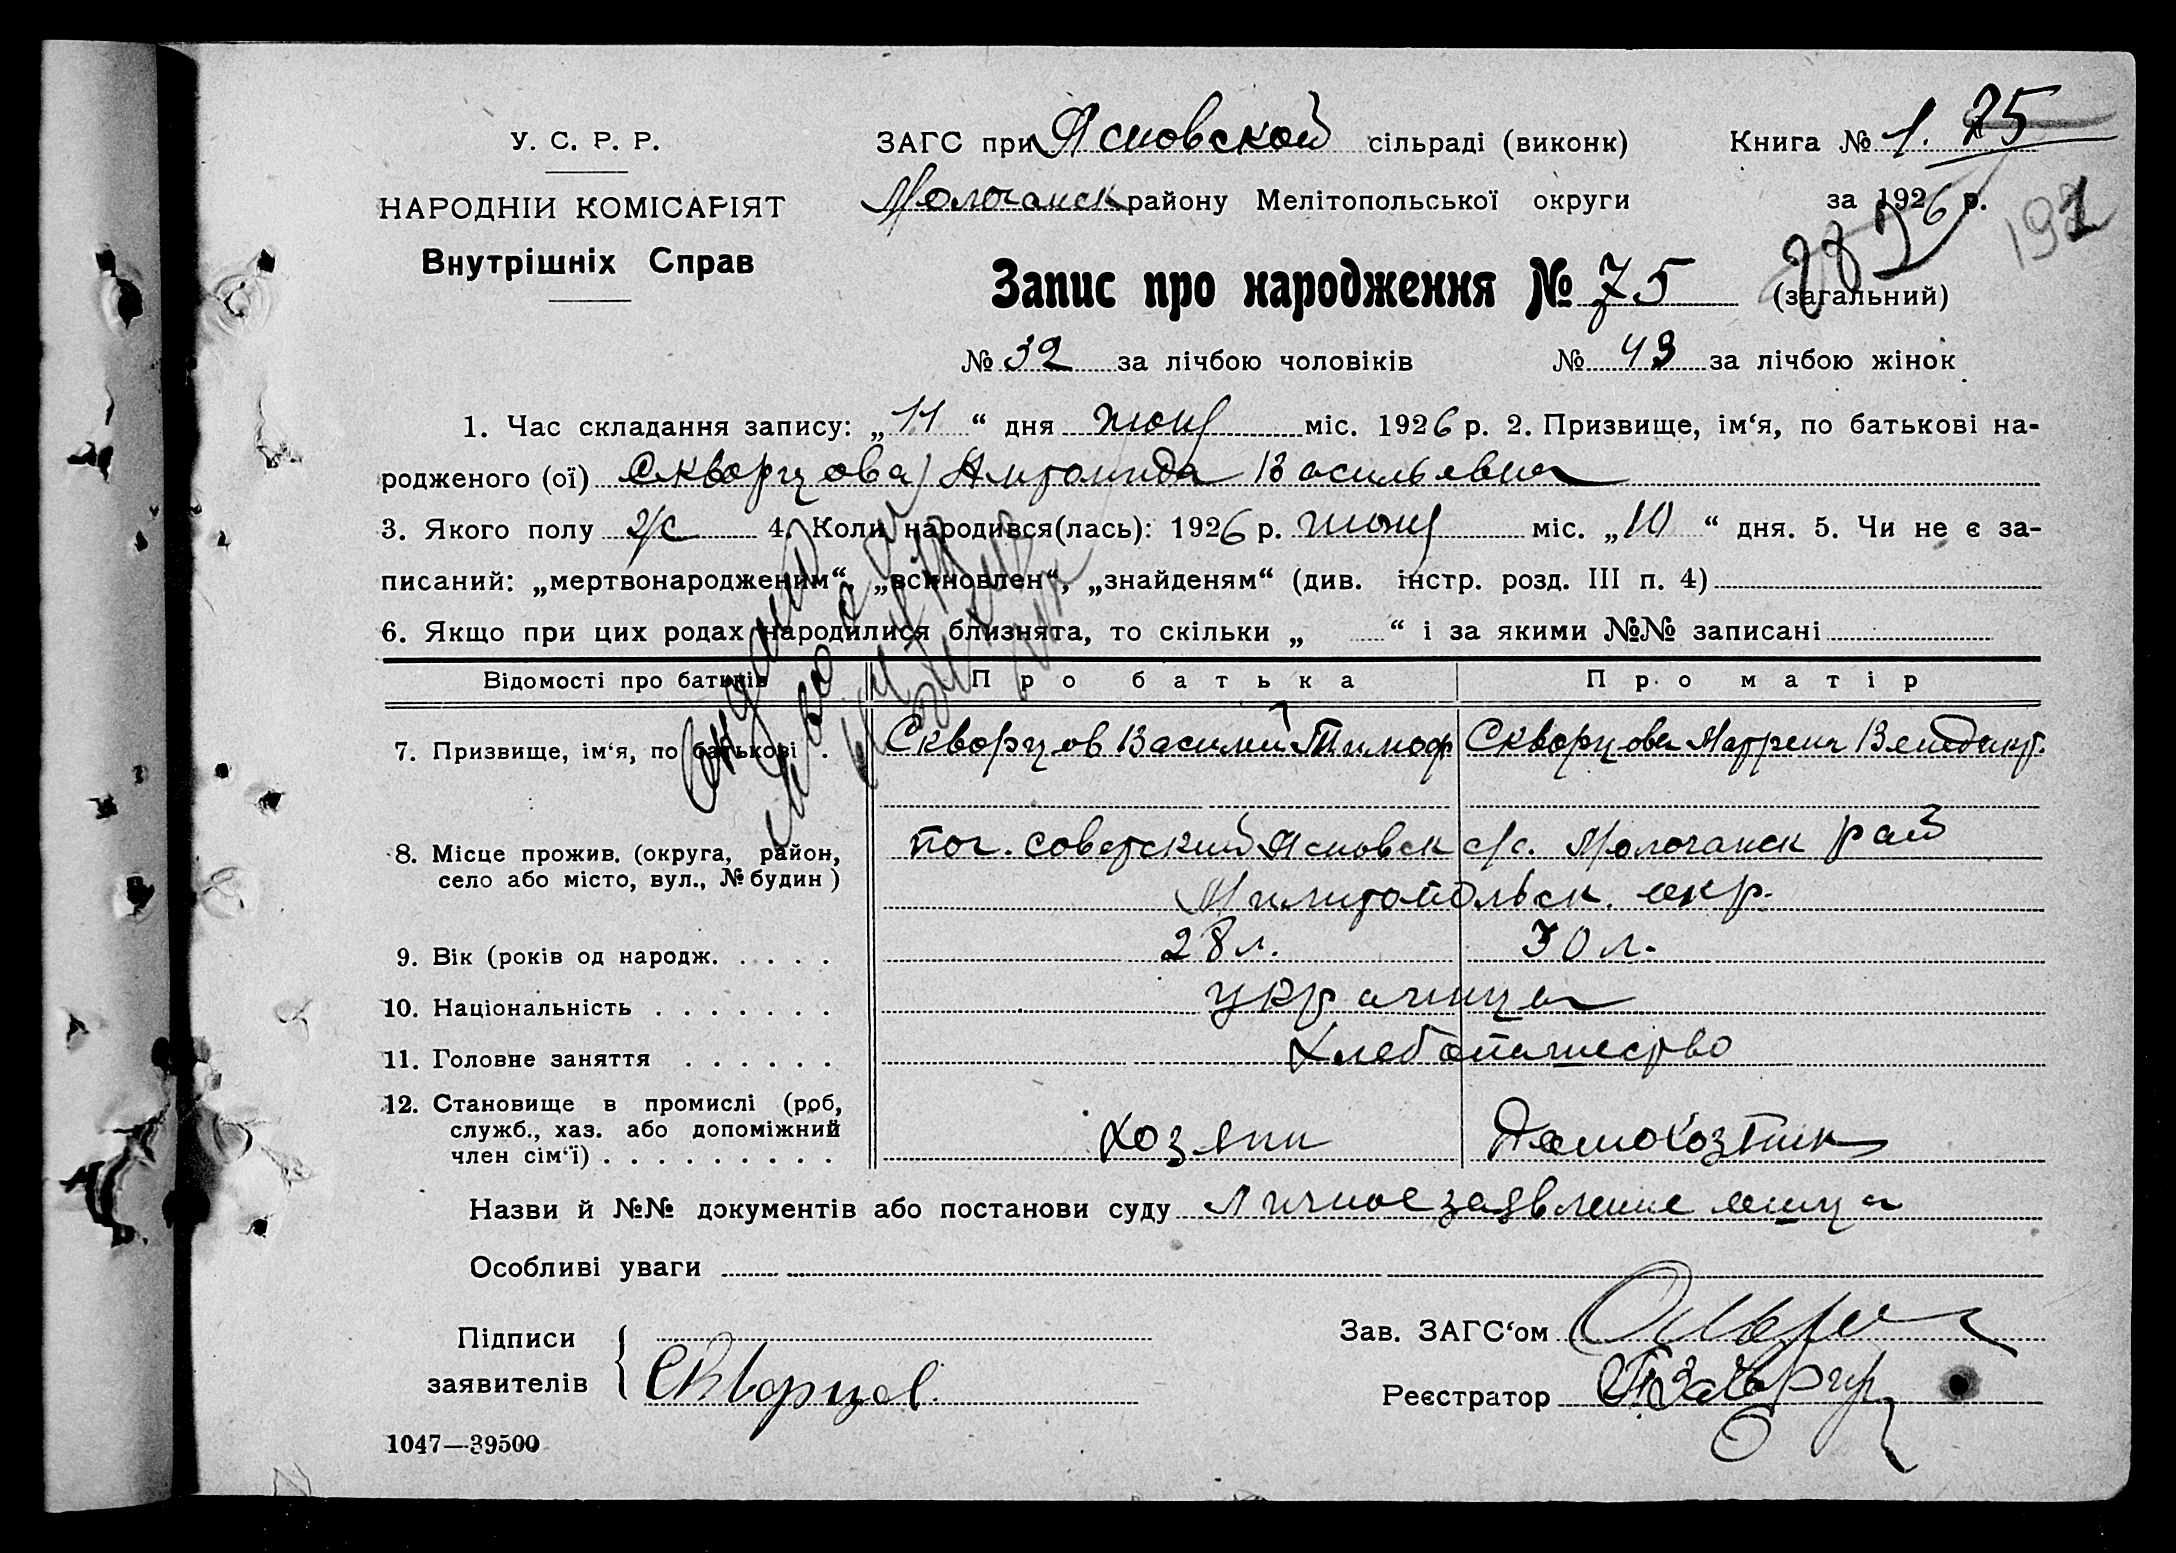 У. С. Р. Р.
НАРОДНІИ КОМІСАРІЯТ
Внутрішніх Справ
ЗАГС при Ясновской сільраді (виконк)
Книга № 1. 75
Молочанск району Мелітопольської округи
за 1926 р.
192
Запис про народження № 75 (загальний)
№ 32 за лічбою чоловіків № 43 за лічбою жінок
1. Час складання запису: „11“ дня июня міс. 1926 р. 2. Призвище, ім‘я, по батькові на-
родженого (ої) Скворцова Антонида Васильевна
3. Якого полу ж 4. Коли народився(лась): 1926 р. июня міс. „10“ дня. 5. Чи не є за-
писаний: „мертвонародженим“ „всиновлен“, „знайденям“ (див. інстр. розд. III п. 4)
6. Якщо при цих родах народилися близнята, то скільки „ “ і за якими №№ записані
Відомості про батьків Про батька Про матір
7. Призвище, ім‘я, по батькові . Скворцов Василий Тимоф Скворцова Матрена Венедикт.
8. Місце прожив. (округа, район,
село або місто, вул., № будин)
пос. советский Ясновск с/с. Молочанск рай
Милитопольск. окр.
9. Вік (років од народж. . . . . 28 л. 30 л.
10. Національність . . . . . . . украинцы
11. Головне заняття . . . . . . Хлебопашество
12. Становище в промислі (роб,
служб., хаз. або допоміжний
член сім‘ї) . . . . . . . . . Хозяин Домохозяйк
Назви й №№ документів або постанови суду Личное заявление отца
Особливі уваги
Підписи
заявителів
Скворцов.
Зав. ЗАГС‘ом
Реєстратор
1047—39500